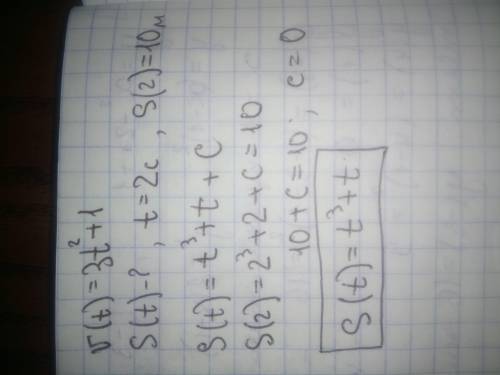 v(t)=3t²+1
S(t)-?, t=2c, S(2)=10м
S(t)=t³+t+C
S(2)=2³+2+C=10
10+C=10; c=0
S(t)=t³+t